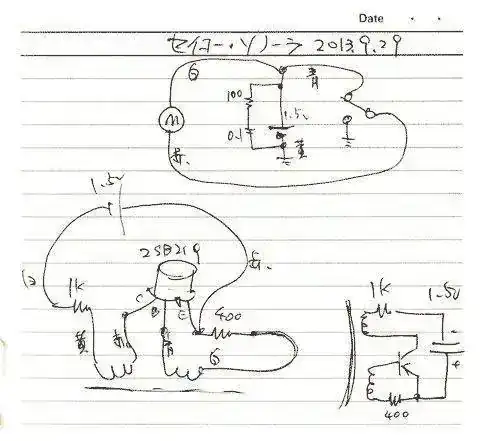 Date
セイコー・ソノーラ 2013.9.29
白 青
100
1.5v
M
0.1 黄
赤
1.5v
2SB219
白 1K 赤
C B E
400
黄 赤 青 白
1K 1.5V
-
+
400